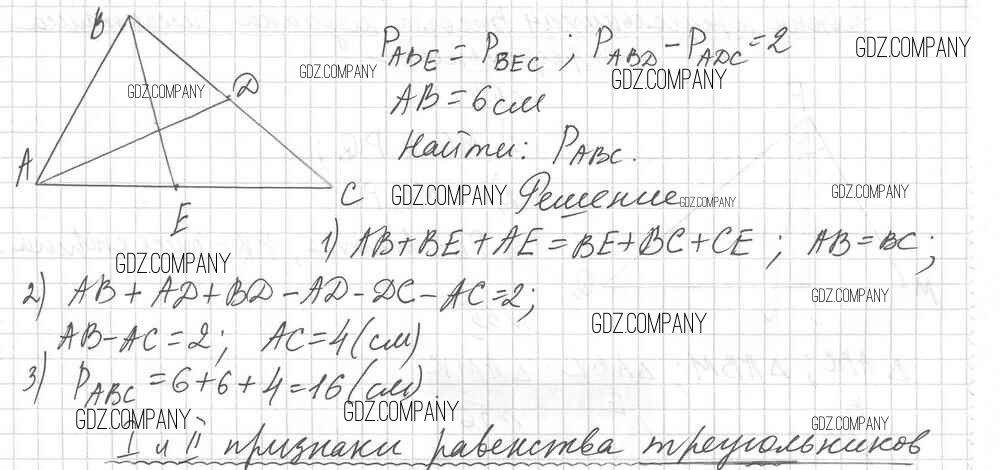 B
P_ABE = P_BEC ; P_ABD - P_ADC = 2
GDZ.COMPANY
GDZ.COMPANY
GDZ.COMPANY
GDZ.COMPANY
D
AB = 6 см
A
Найти: P_ABC.
E
C
GDZ.COMPANY
Решение
GDZ.COMPANY
GDZ.COMPANY
1) AB + BE + AE = BE + BC + CE ; AB = BC;
GDZ.COMPANY
2) AB + AD + BD - AD - DC - AC = 2;
GDZ.COMPANY
GDZ.COMPANY
AB - AC = 2; AC = 4 (см)
3) P_ABC = 6 + 6 + 4 = 16 (см).
GDZ.COMPANY
GDZ.COMPANY
GDZ.COMPANY
I и II признаки равенства треугольников